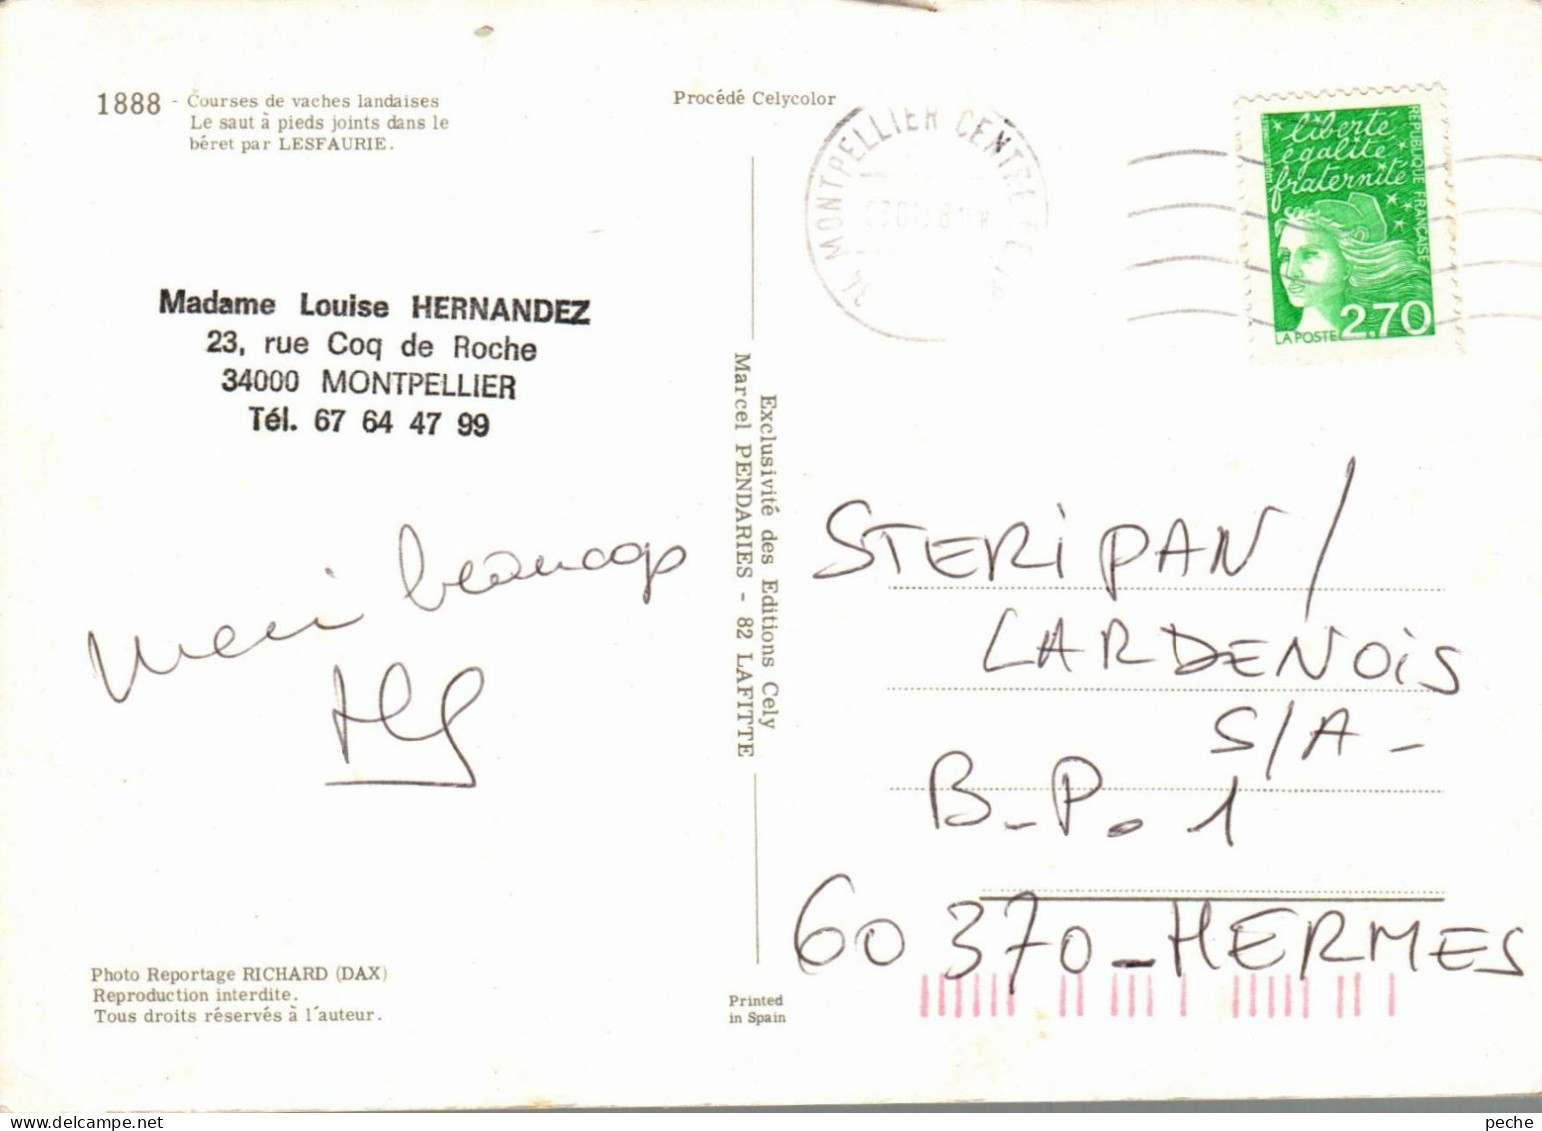 1888 - Courses de vaches landaises
Le saut à pieds joints dans le
béret par LESFAURIE.
Procédé Celycolor
34 MONTPELLIER CENTRE
liberté
égalité
fraternité
REPUBLIQUE FRANÇAISE
LA POSTE 2,70
Madame Louise HERNANDEZ
23, rue Coq de Roche
34000 MONTPELLIER
Tél. 67 64 47 99
Merci beaucoup
Exclusivité des Editions Cely
Marcel PENDARIES - 82 LAFITTE
STERIPAN/
LARDENOIS
S/A-
B.P. 1
60370-HERMES
Photo Reportage RICHARD (DAX)
Reproduction interdite.
Tous droits réservés à l'auteur.
Printed
in Spain
peche